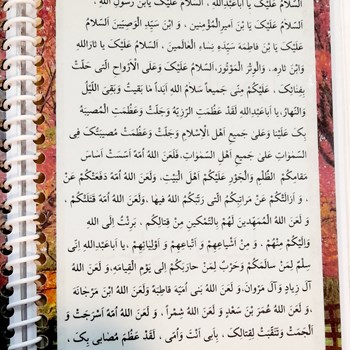 اَلسَّلامُ عَلَیْکَ یا اَباعَبْدِاللهِ ، اَلسَّلامُ عَلَیْکَ یَابْنَ رَسُولِ اللهِ ،
اَلسَّلامُ عَلَیْکَ یَا بْنَ اَمیرِالْمُؤْمِنینَ ، وَ ابْنَ سَیِّدِ الْوَصِیّینَ اَلسَّلامُ
عَلَیْکَ یَا بْنَ فاطِمَهَ سَیِّدَهِ نِساءِ الْعالَمینَ . اَلسَّلامُ عَلَیْکَ یا ثارَاللهِ
وَابْنَ ثارِهِ . وَالْوِتْرَ الْمَوْتُورَ، اَلسَّلامُ عَلَیْکَ وَعَلَی الْاَرْواحِ الَّتی حَلَّتْ
بِفِنائِکَ ، عَلَیْکُمْ مِنّی جَمیعاً سَلامُ اللهِ اَبَداً ما بَقیتُ وَبَقِیَ اللَّیْلُ
وَالنَّهارُ. یا اَباعَبْدِاللهِ لَقَدْ عَظُمَتِ الرَّزِیَّهُ وَجَلَّتْ وَعَظُمَتِ الْمُصیبَهُ
بِکَ عَلَیْنا وَعَلی جَمیعِ اَهْلِ الْاِسْلامِ وَجَلَّتْ وَعَظُمَتْ مُصیبَتُکَ فِی
السَّمٰوٰاتِ عَلی جَمیعِ اَهْلِ السَّمٰوٰاتِ. فَلَعَنَ اللهُ اُمَّهً اَسَّسَتْ اَساسَ
الظُّلْمِ وَالْجَوْرِ عَلَیْکُمْ اَهْلَ الْبَیْتِ. وَلَعَنَ اللهُ اُمَّهً دَفَعَتْکُمْ عَنْ
مَقامِکُمْ وَ اَزالَتْکُمْ عَنْ مَراتِبِکُمُ الَّتی رَتَّبَکُمُ اللهُ فیها. وَلَعَنَ اللهُ اُمَّهً قَتَلَتْکُمْ ،
وَ لَعَنَ اللهُ الْمُمَهِّدینَ لَهُمْ بِالتَّمْکینِ مِنْ قِتالِکُمْ ، بَرِئْتُ اِلَی اللهِ
وَاِلَیْکُمْ مِنْهُمْ ، وَ مِنْ اَشْیاعِهِمْ وَ اَتْباعِهِمْ وَ اَوْلِیائِهِمْ ، یا اَباعَبْدِاللهِ اِنّی
سِلْمٌ لِمَنْ سالَمَکُمْ وَحَرْبٌ لِمَنْ حارَبَکُمْ اِلی یَوْمِ الْقِیامَهِ. وَ لَعَنَ اللهُ
آلَ زِیادٍ وَ آلَ مَرْوانَ. وَلَعَنَ اللهُ بَنی اُمَیَّهَ قاطِبَهً وَلَعَنَ اللهُ ابْنَ مَرْجانَهَ
. وَ لَعَنَ اللهُ عُمَرَ بْنَ سَعْدٍ وَ لَعَنَ اللهُ شِمْراً. وَ لَعَنَ اللهُ اُمَّهً اَسْرَجَتْ وَ
اَلْجَمَتْ وَتَنَقَّبَتْ لِقِتالِکَ . بِاَبی اَنْتَ وَاُمّی . لَقَدْ عَظُمَ مُصابی بِکَ ،